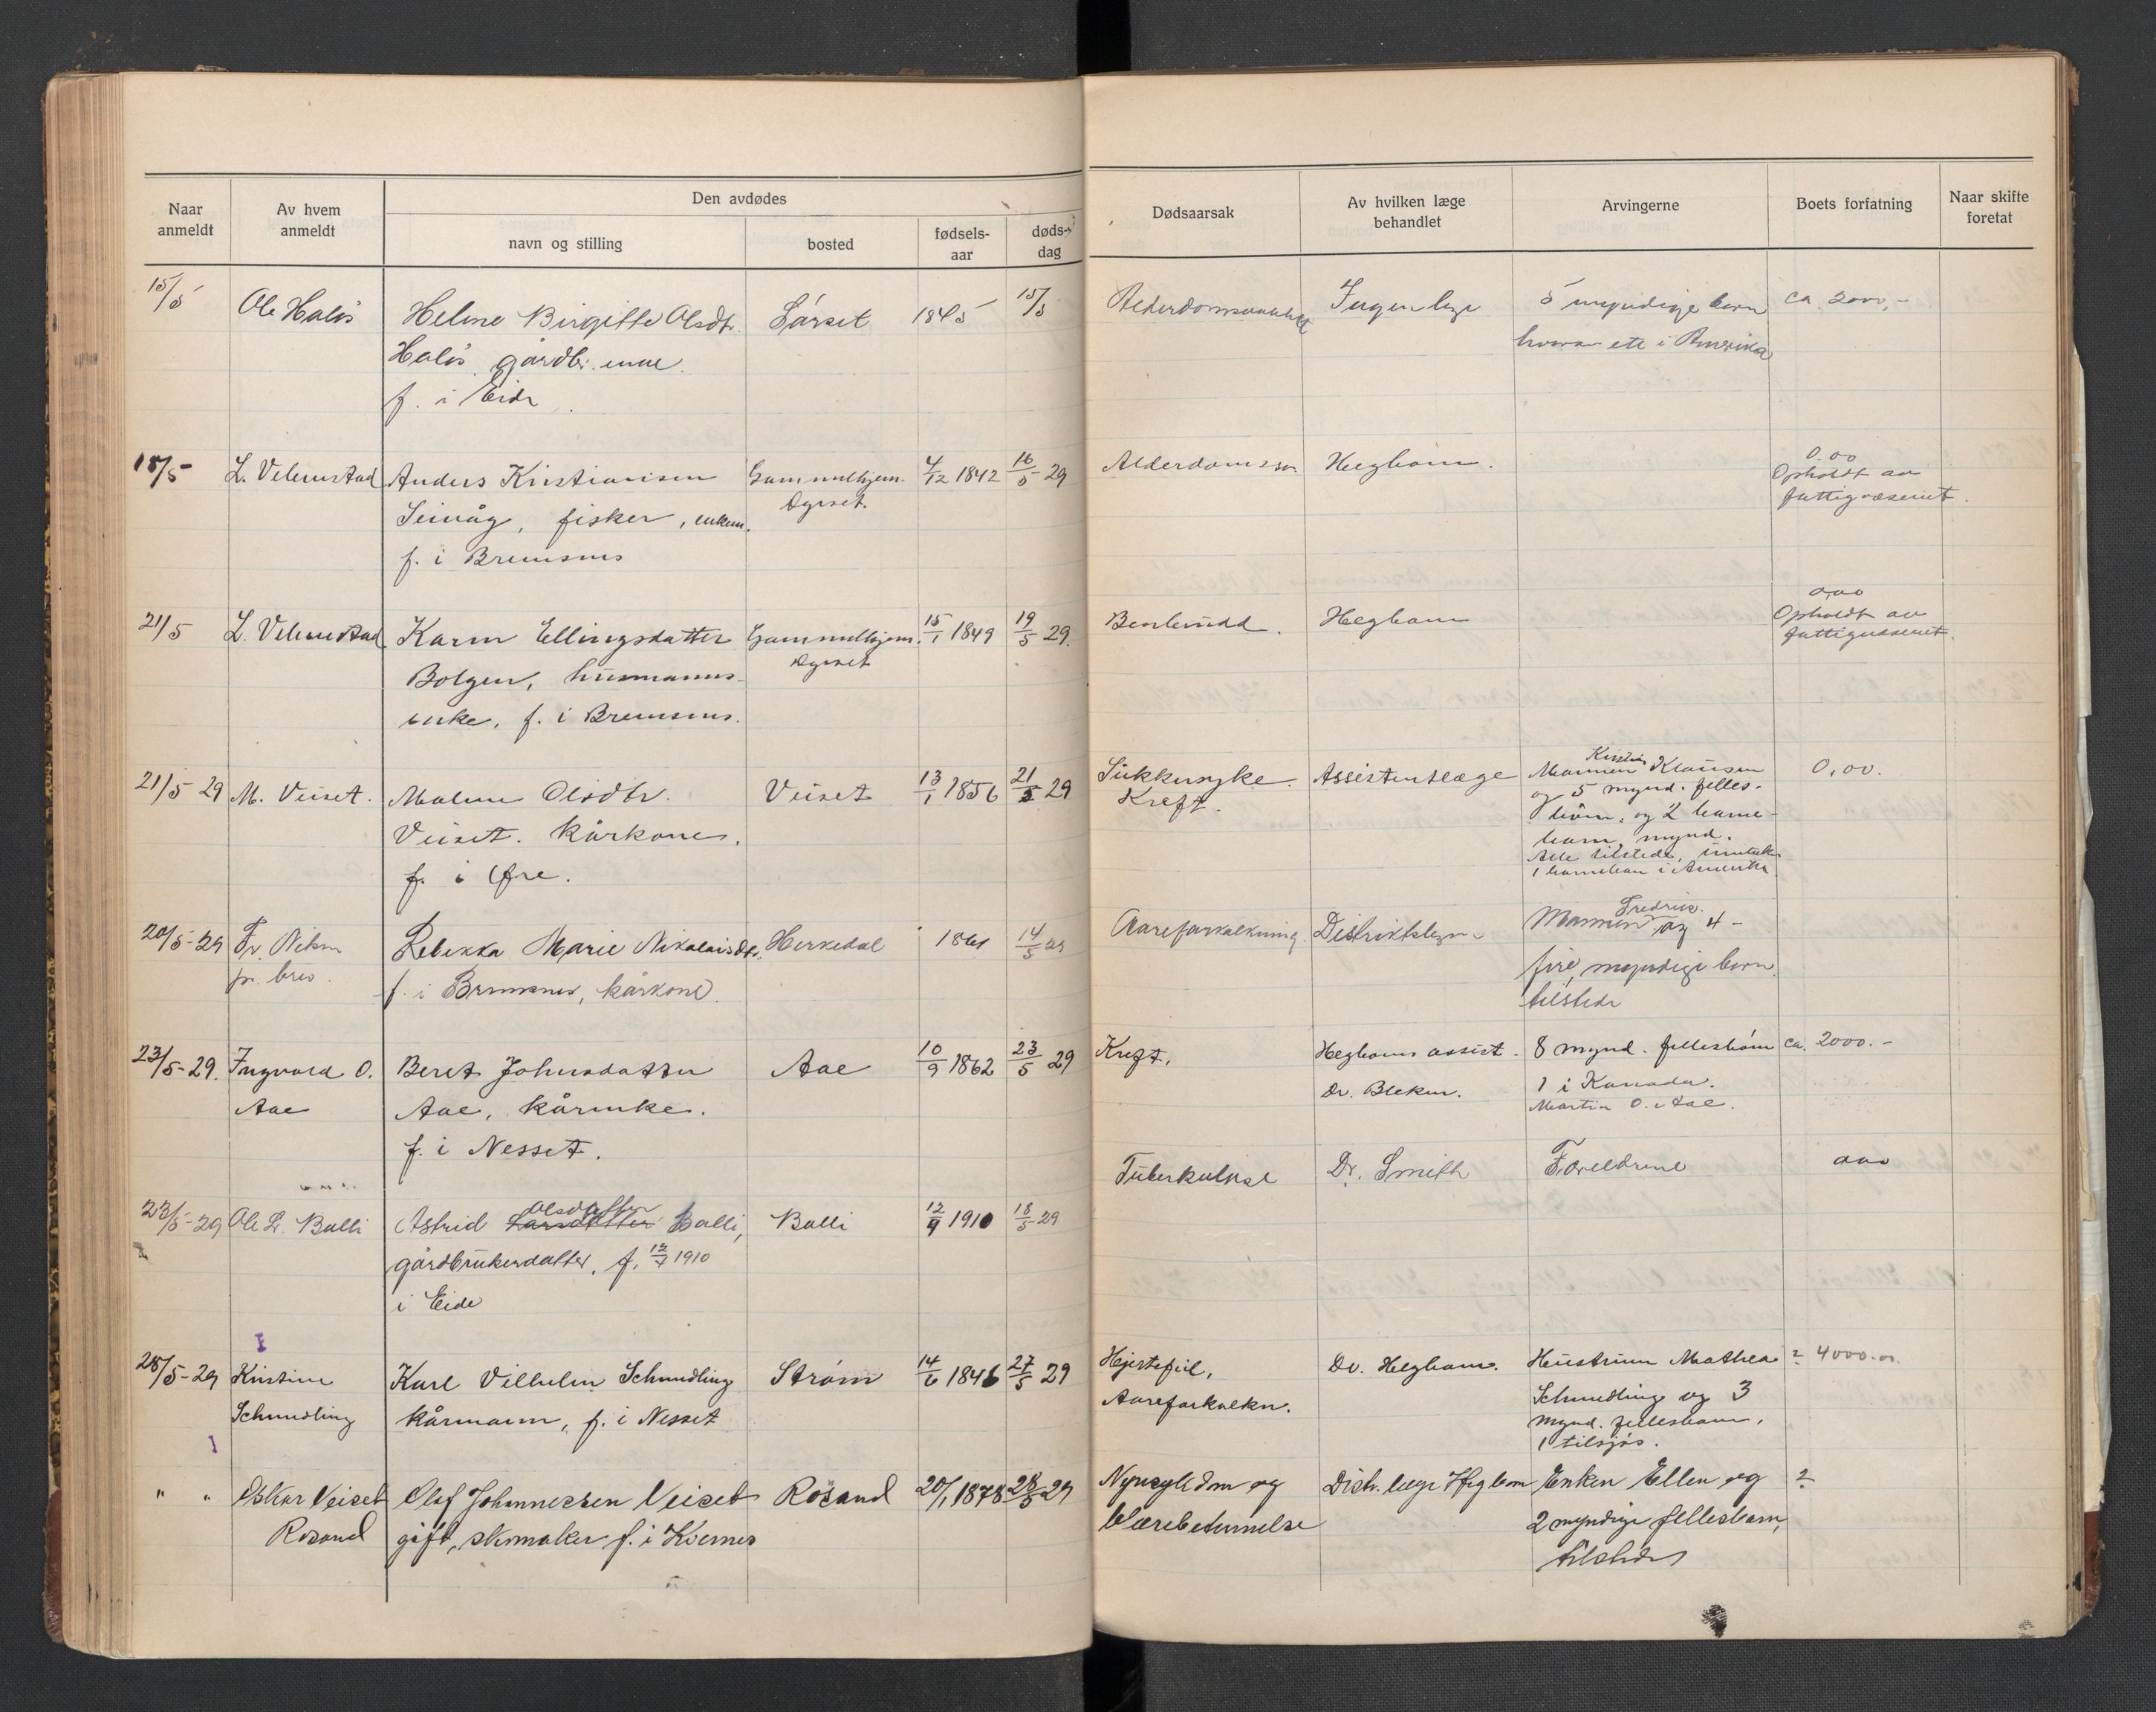 Naar anmeldt
Av hvem anmeldt
Den avdødes
navn og stilling
bosted
fødsels-aar
døds-dag
Dødsaarsak
Av hvilken læge behandlet
Arvingerne
Boets forfatning
Naar skifte foretat
15/5 Ole Haläs Helene Birgitte Olsdtr. Lårset 1845 15/5 Ingen lege 5 myndige barn ca. 2000,-
Haläs gårdbr. enke hvorav ett i Amerika
f. i Eide
18/5 L. Velumstad Anders Kristiansen Gammelhjem 4/12 1842 16/5 29 Alderdomssv. Hegbom. 0.00
Seivåg, fisker, enkem. Dyrset. Opholdt av
f. i Bremsnes fattigvæsenet.
21/5 L. Velumstad Karen Ellingsdatter Gammelhjem. 15/1 1849 19/5 29. Benbrudd. Hegbom 0,00
Bolgen, husmanns- Dyrset Opholdt av
enke, f. i Bremsnes. fattigvæsenet.
21/5 29 M. Veiset. Malene Olsdtr. Veiset 13/1 1856 21/5 29 Sukkersyke. Assistentlæge Mannen Kristian Klausen 0,00.
Veiset. kårkone. Kreft. og 5 mynd. felles-
f. i Øre. barn, og 2
barn, mynd.
Alle tilstede, unntak
1 i Amerika
20/5-29 Fr. Rebekka Marie Nikolaisdtr. Herkedal 1861 14/5 29 Aareforkalkning Distriktslegen Mannen Fredrik og 4-
pr. brev. f. i Bremsnes, kårkone. fire myndige barn
tilstede
23/5-29. Ingvald O. Beret Johnsdatter Aae 10/9 1862 23/5 29 Kreft. Hegboms assist. 8 mynd. fellesbarn ca. 2000.-
Aae Aae, kårenke. Dr. Bleken. 1 i Kanada.
f. i Nesset. Martin O. Aae.
23/5-29 Ole L. Bolli Astrid Larsdatter Olsdatter Bolli, Bolli 12/9 1910 18/5 29 Tuberkulose Dr. Smith Foreldrene 0,00
gårdbrukerdatter, f. 12/9 1910
i Eide
28/5-29 Kristine Karl Vilhelm Schmedling Strøm 14/6 1846 27/5 29 Hjertefeil, Dr. Hegbom. Hustruen Mathea ? 4000.00
Schmedling kårmann, f. i Nesset Aareforkalkn. Schmedling og 3
mynd. fellesbarn,
1 tilsjøs.
" " Oskar Veiset Olaf Johannessen Veiset Rosand 20/1 1878 28/5-29 Nyresykdom og Distr. lege Hegbom Enken Ellen og ?
Rosand gift, skomaker f. i Kvernes 2 myndige fellesbarn,
tilstede